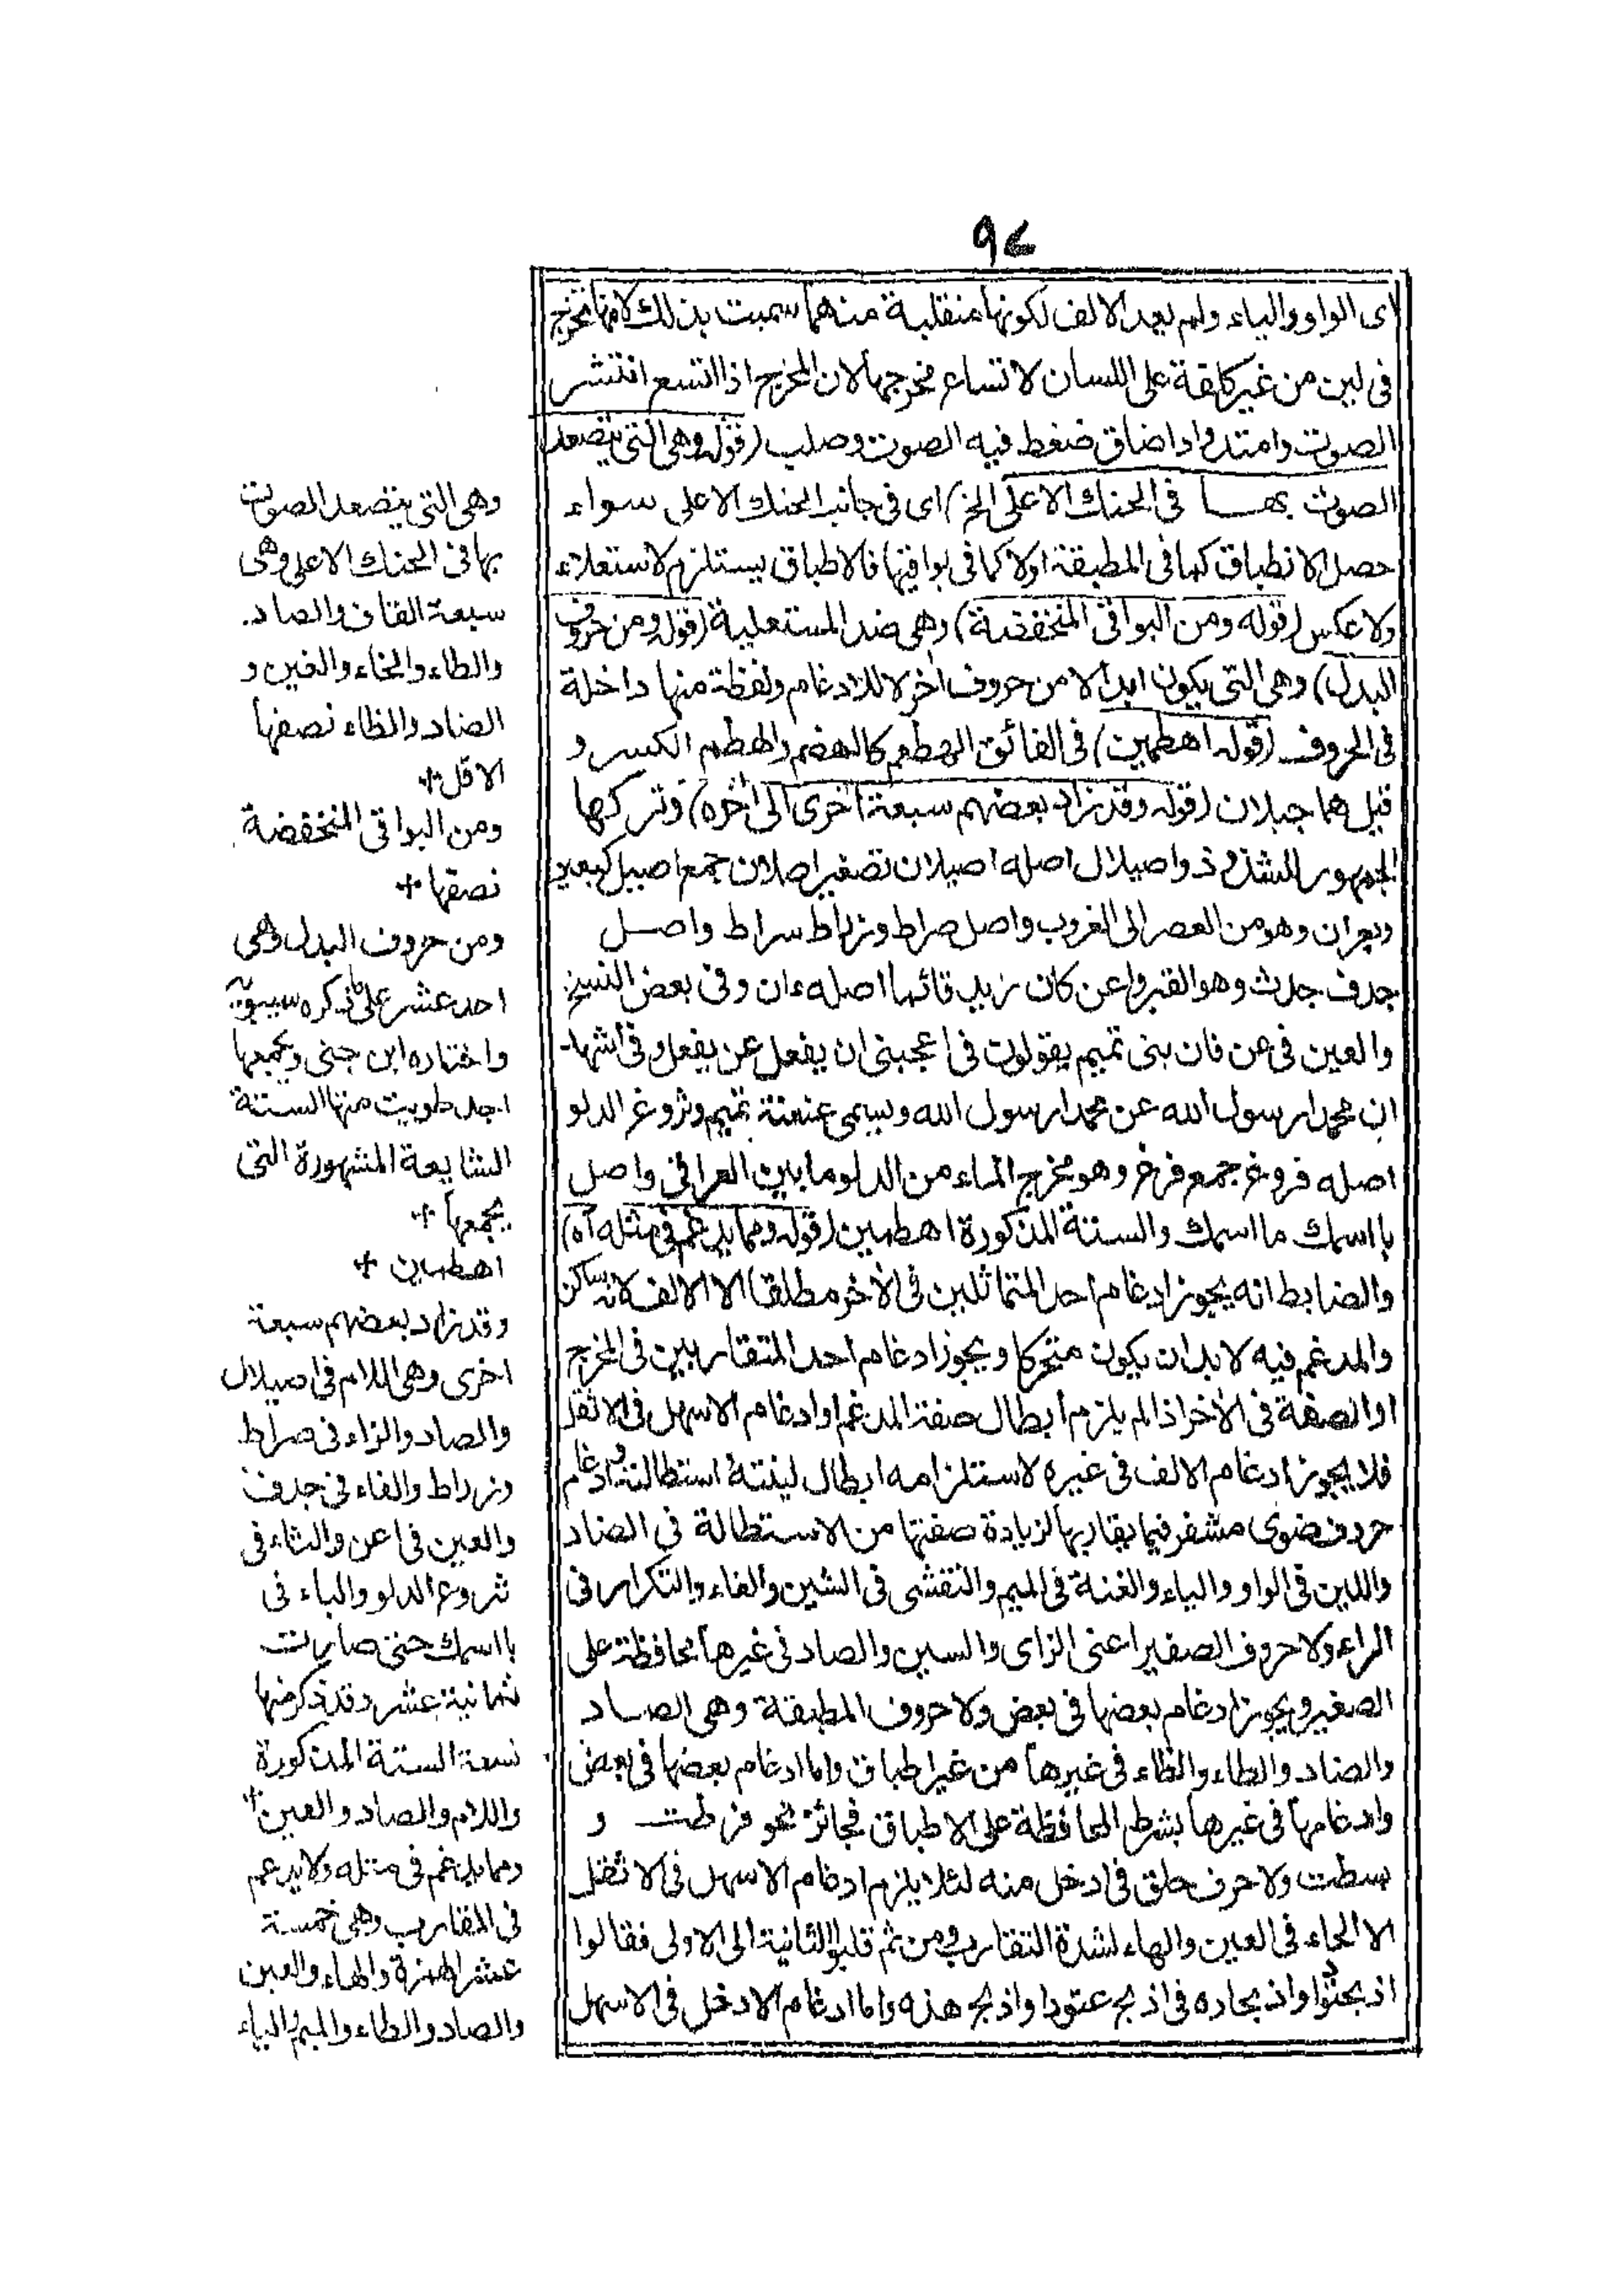 ٩٤
اى الواو والياء ولم يعد الالف لكونها منقلبة منهما سميت بذلك لانها تخرج
فى لين من غير كلفة على اللسان لاتساع مخرجها لان المخرج اذا اتسع انتشر
الصوت وامتد واذا ضاق ضغط فيه الصوت وصلب (قوله وهى التى يتصعد
الصوت بهــا فى الحنك الاعلى الخ) اى فى جانب الحنك الاعلى سواء
حصل الانطباق كما فى المطبقة اولا كما فى بواقيها فالاطباق يستلزم الاستعلاء
ولا عكس (قوله ومن البواقى المنخفضة) وهى ضد المستعلية (قوله ومن حروف
البدل) وهى التى يكون ابدالا من حروف اخر لا للادغام ولفظة منها داخلة
فى الحروف (قوله اهطمين) فى الفائق الهطم كالهضم والهطم الكسر و
قيل هما جبلان (قوله وقد زاد بعضهم سبعة اخرى الى اخره) وتركها
الجمهور للشذوذ واصيلال اصله اصيلان تصغير اصلان جمع اصيل كبعير
وبعران وهو من العصر الى الغروب واصل صراط وزراط سراط واصــل
جدف جدث وهو القبر واعن كان زيد قائما اصله ءان وفى بعض النسخ
والعين فى عن فان بنى تميم يقولون فى اعجبنى ان يفعل عن يفعل وفى اشهد
ان محمدا رسول الله عن محمدا رسول الله ويسمى عنعنة تميم وثروغ الدلو
اصله فروغ جمع فرغ وهو مخرج الماء من الدلو ما بين العراقى واصل
با اسمك ما اسمك والستة المذكورة اهطمين (قوله ومما يدغم فى مثله اه)
والضابط انه يجوز ادغام احد المتماثلين فى الاخر مطلقا الا الالف لانه ساكن
والمدغم فيه لا بد ان يكون متحركا ويجوز ادغام احد المتقاربين فى المخرج
او الصفة فى الاخر اذا لم يلزم ابطال صفة المدغم او ادغام الاسهل فى الاثقل
فلا يجوز ادغام الالف فى غيره لاستلزامه ابطال لينته استطالته وادغام
حروف ضوى مشفر فيما يقاربها لزيادة صفتها من الاستطالة فى الضاد
واللين فى الواو والياء والغنة فى الميم والتفشى فى الشين والفاء والتكرار فى
الراء ولا حروف الصفير اعنى الزاى والسين والصاد فى غيرها محافظة على
الصفير ويجوز ادغام بعضها فى بعض ولا حروف المطبقة وهى الصــاد
والضاد والطاء والظاء فى غيرها من غير اطباق واما ادغام بعضها فى بعض
وادغامها فى غيرها بشرط المحافظة على الاطباق فجائز نحو فرطت و
بسطت ولا حرف حلق فى ادخل منه لئلا يلزم ادغام الاسهل فى الاثقل
الا الحاء فى العين والهاء لشدة التقارب ومن ثم قلبوا الثانية الى الاولى فقالوا
اذبحتودا واذبحاده فى اذبح عتودا واذبح هذه واما ادغام الادخل فى الاسهل
وهى التى يتصعد الصوت
بها فى الحنك الاعلى وهى
سبعة القاف والصاد
والطاء والخاء والغين و
الضاد والظاء نصفها
الاقل +
ومن البواقى المنخفضة
نصفها +
ومن حروف البدل وهى
احد عشر على ما ذكره سيبويه
واختاره ابن جنى ويجمعها
اجد طويت منها الستة
الشايعة المشهورة التى
يجمعها +
اهطمين +
وقد زاد بعضهم سبعة
اخرى وهى اللام فى اصيلال
والصاد والزاء فى صراط
وزراط والفاء فى جدف
والعين فى اعن والثاء فى
ثروغ الدلو والباء فى
با اسمك حتى صارت
ثمانية عشر وقد ذكر منها
تسعة الستة المذكورة
واللام والصاد والعين +
ومما يدغم فى مثله ولا يدغم
فى المقارب وهى خمسة
عشر الهمزة والهاء والعين
والصاد والطاء والميم والياء